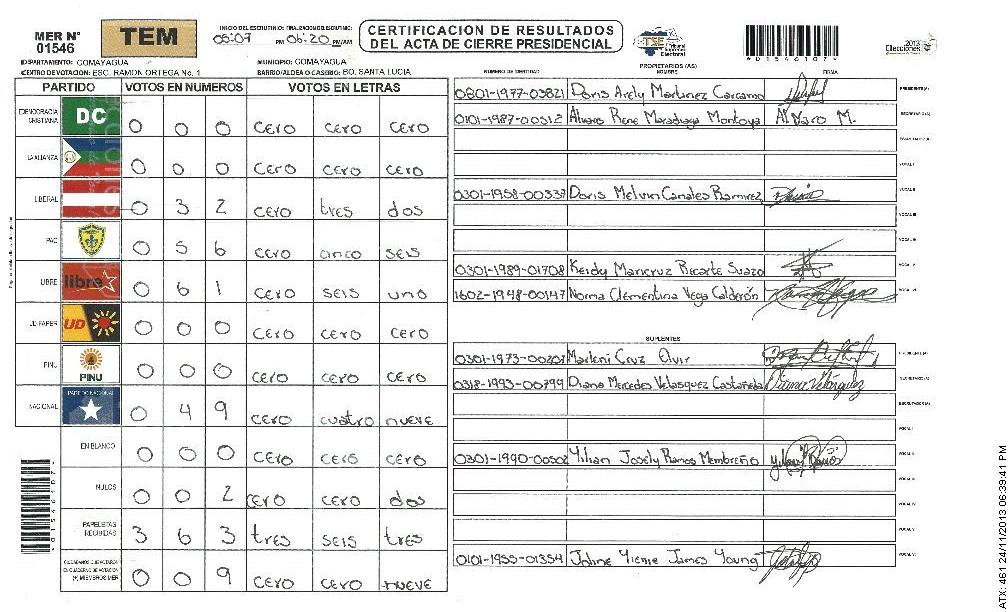 MER N° 01546
TEM
INICIO DEL ESCRUTINIO: FINALIZACION DEL ESCRUTINIO:
05:07 PM 06:20 PM/AM
CERTIFICACION DE RESULTADOS
DEL ACTA DE CIERRE PRESIDENCIAL
TSE Tribunal Supremo Electoral
*01546107*
2013 Elecciones
DEPARTAMENTO: COMAYAGUA MUNICIPIO: COMAYAGUA
CENTRO DE VOTACION: ESC. RAMON ORTEGA No. 1 BARRIO/ALDEA O CASERIO: BO. SANTA LUCIA
PARTIDO VOTOS EN NUMEROS VOTOS EN LETRAS
DEMOCRACIA CRISTIANA DC 0 0 0 cero cero cero
LA ALIANZA 0 0 0 cero cero cero
LIBERAL 0 3 2 cero tres dos
PAC 0 5 6 cero cinco seis
LIBRE libre 0 6 1 cero seis uno
UD-FAPER UD 0 0 0 cero cero cero
PINU PINU 0 0 0 cero cero cero
NACIONAL PARTIDO NACIONAL 0 4 9 cero cuatro nueve
EN BLANCO 0 0 0 cero cero cero
NULOS 0 0 2 cero cero dos
PAPELETAS RECIBIDAS 3 6 3 tres seis tres
CIUDADANOS QUE VOTARON EN CUADERNO DE VOTACION (+) MIEMBROS MER 0 0 9 cero cero nueve
PROPIETARIOS (AS)
NUMERO DE IDENTIDAD NOMBRE FIRMA
0801-1977-03821 Doris Arely Martinez Carcamo PRESIDENTE(A)
0101-1987-00312 Alvaro Rene Maradiaga Montoya Alvaro M. SECRETARIO(A)
ESCRUTADOR(A)
VOCAL I
0301-1958-00337 Doris Melvin Canales Ramirez VOCAL II
VOCAL III
VOCAL IV
0301-1989-01708 Keidy Maricruz Recarte Suazo VOCAL V
1602-1948-00147 Norma Clementina Vega Calderón VOCAL VI
SUPLENTES
0301-1973-00207 Marleni Cruz PRESIDENTE(A)
0318-1993-00799 Diana Mercedes Velasquez Castañeda Diana Velásquez SECRETARIO(A)
ESCRUTADOR(A)
VOCAL I
0301-1990-00502 Yilian Josely Ramos Membreño VOCAL II
VOCAL III
VOCAL IV
VOCAL V
0101-1955-01354 James Young VOCAL VI
*01546107*
ATX: 461 24/11/2013 06:39:41 PM